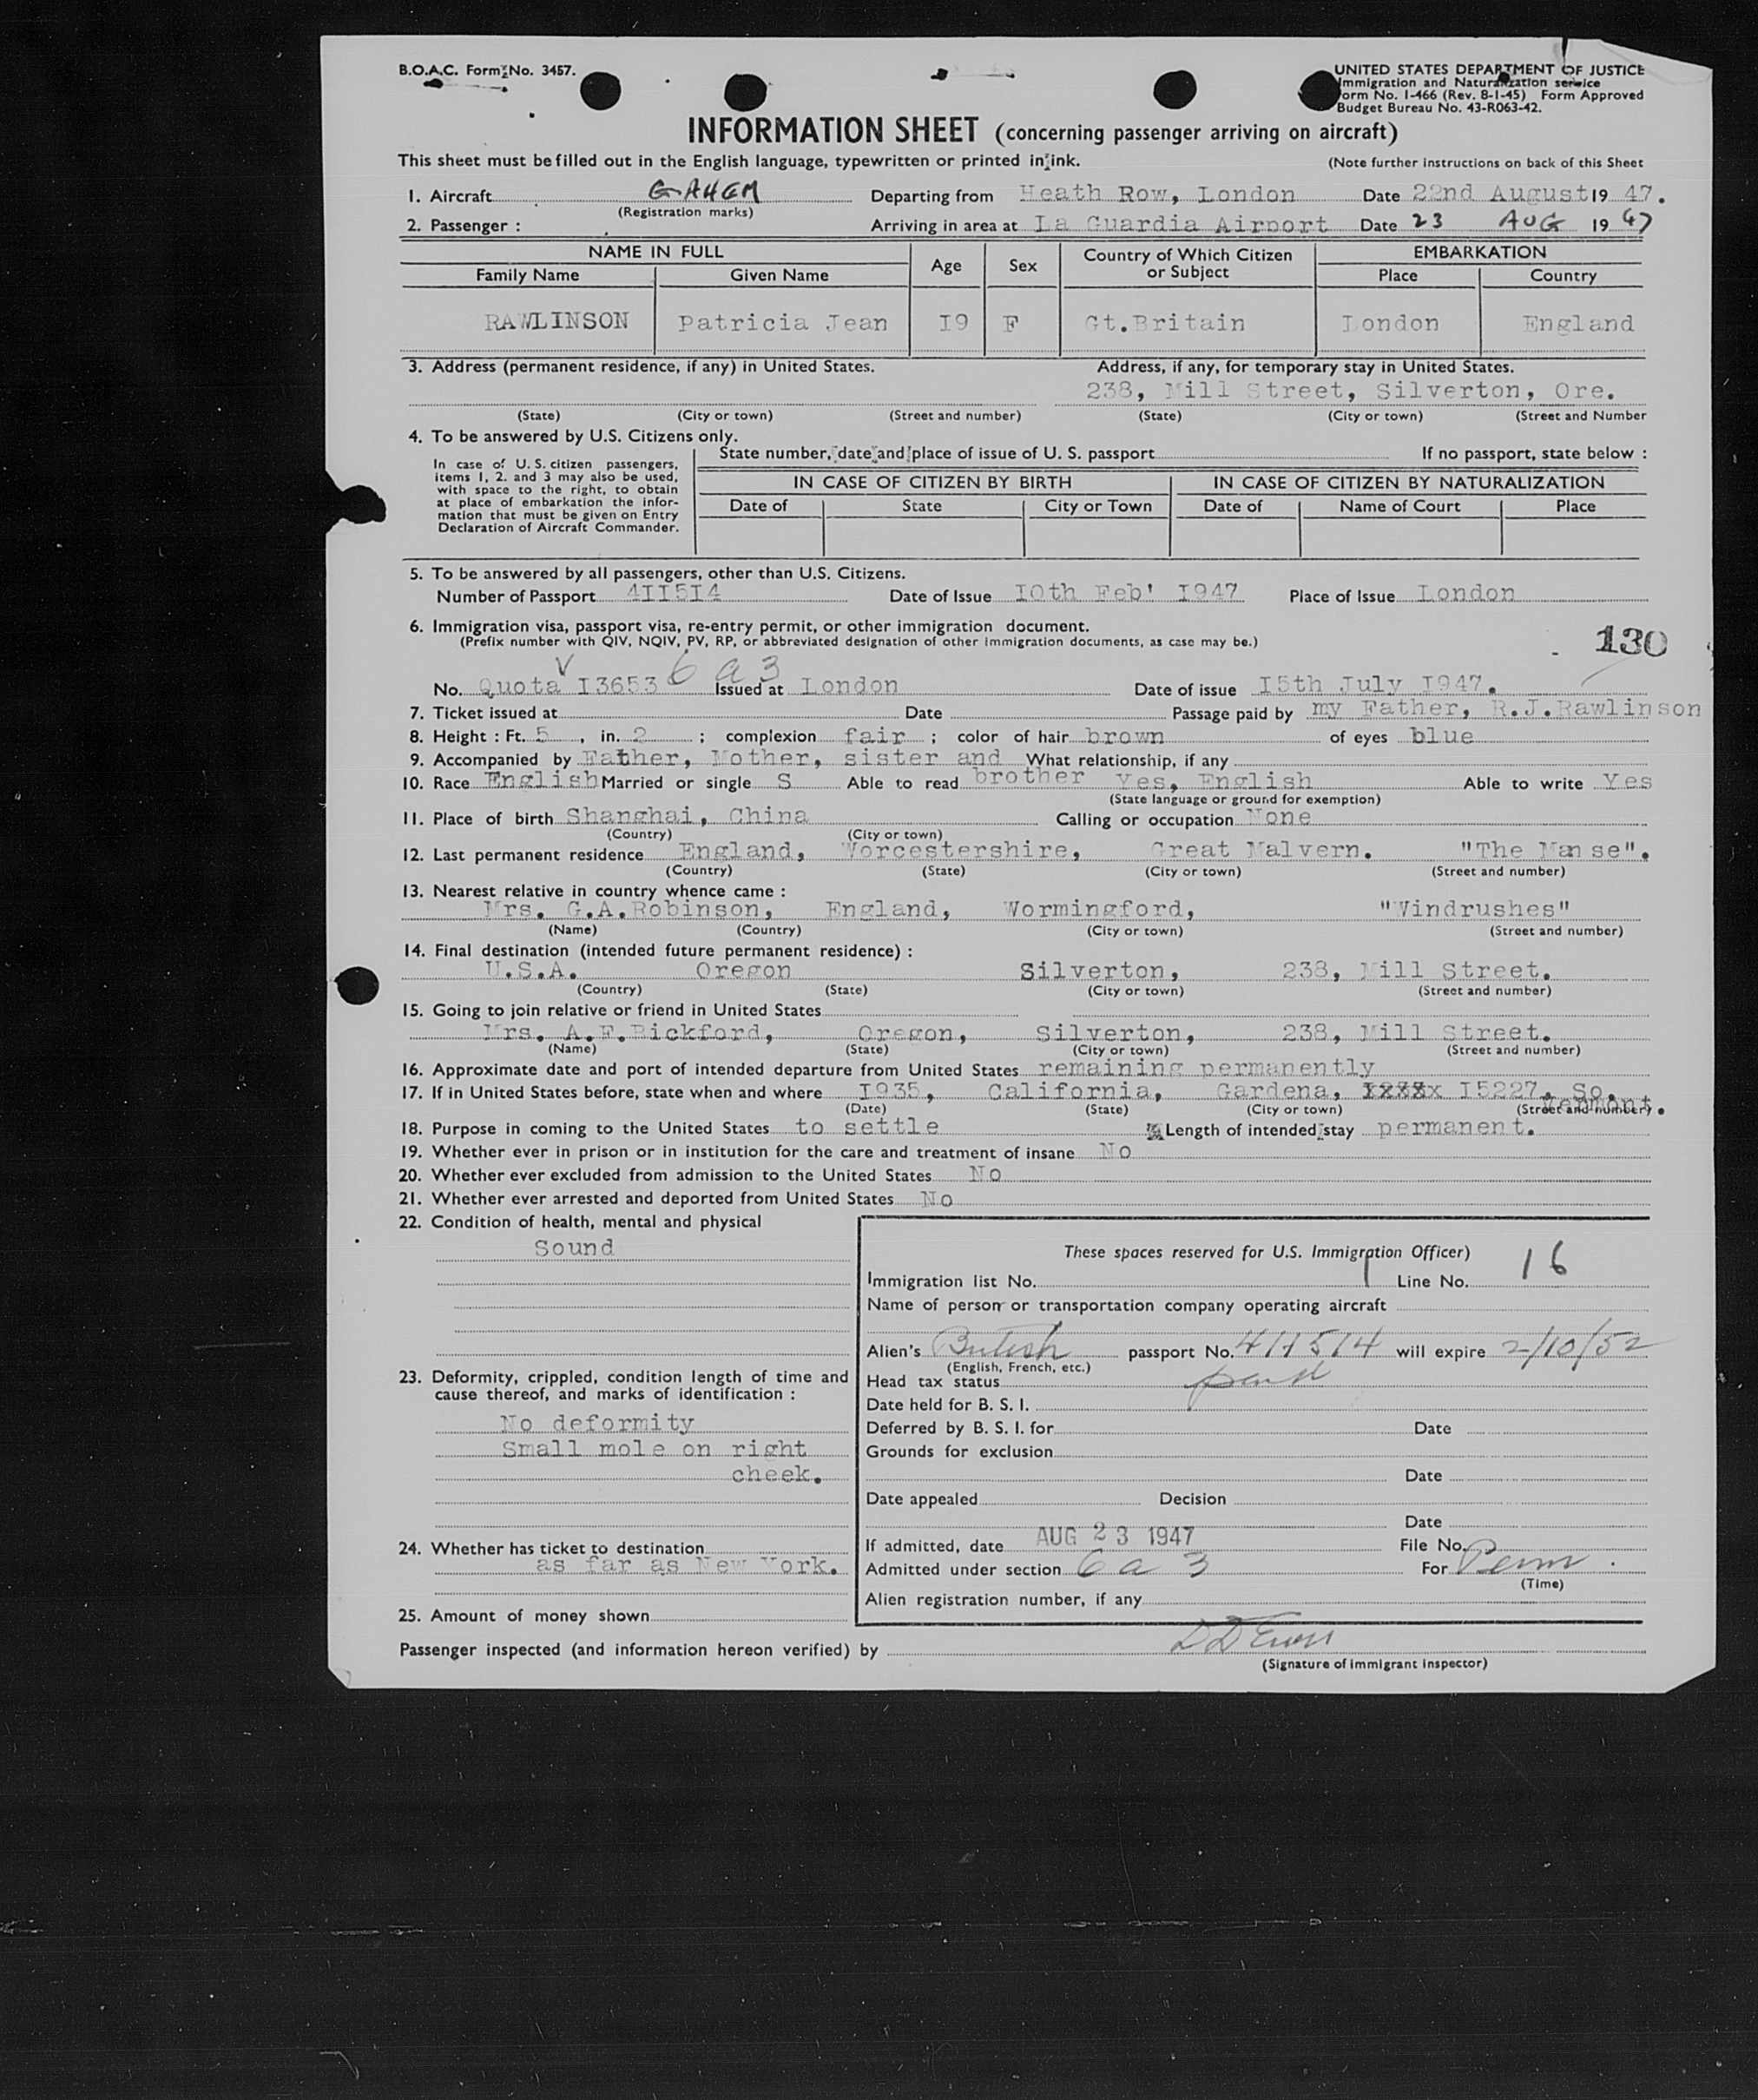 B.O.A.C. Form No. 3457.
UNITED STATES DEPARTMENT OF JUSTICE
Immigration and Naturalization service
Form No. I-466 (Rev. 8-1-45) Form Approved
Budget Bureau No. 43-R063-42.
INFORMATION SHEET (concerning passenger arriving on aircraft)
This sheet must be filled out in the English language, typewritten or printed in ink. (Note further instructions on back of this Sheet
1. Aircraft GAHEM Departing from Heath Row, London Date 22nd August 19 47.
(Registration marks)
2. Passenger : Arriving in area at La Guardia Airport Date 23 AUG 19 47
NAME IN FULL Age Sex Country of Which Citizen or Subject EMBARKATION
Family Name Given Name Place Country
RAWLINSON Patricia Jean I9 F Gt.Britain London England
3. Address (permanent residence, if any) in United States. Address, if any, for temporary stay in United States.
238, Mill Street, Silverton, Ore.
(State) (City or town) (Street and number) (State) (City or town) (Street and Number
4. To be answered by U.S. Citizens only.
State number, date and place of issue of U. S. passport If no passport, state below :
In case of U. S. citizen passengers,
items 1, 2. and 3 may also be used,
with space to the right, to obtain
at place of embarkation the infor-
mation that must be given on Entry
Declaration of Aircraft Commander.
IN CASE OF CITIZEN BY BIRTH IN CASE OF CITIZEN BY NATURALIZATION
Date of State City or Town Date of Name of Court Place
5. To be answered by all passengers, other than U.S. Citizens.
Number of Passport 4II5I4 Date of Issue I0th Feb' I947 Place of Issue London
6. Immigration visa, passport visa, re-entry permit, or other immigration document.
(Prefix number with QIV, NQIV, PV, RP, or abbreviated designation of other immigration documents, as case may be.)
130
V 6 a 3
No. Quota I3653 Issued at London Date of issue I5th July I947.
7. Ticket issued at Date Passage paid by my Father, R.J.Rawlinson
8. Height : Ft. 5 , in. 2 ; complexion fair ; color of hair brown of eyes blue
9. Accompanied by Father, Mother, sister and What relationship, if any
brother
10. Race English Married or single S Able to read Yes, English Able to write Yes
(State language or ground for exemption)
11. Place of birth Shanghai, China Calling or occupation None
(Country) (City or town)
12. Last permanent residence England, Worcestershire, Great Malvern. "The Manse".
(Country) (State) (City or town) (Street and number)
13. Nearest relative in country whence came :
Mrs. G.A.Robinson, England, Wormingford, "Windrushes"
(Name) (Country) (City or town) (Street and number)
14. Final destination (intended future permanent residence) :
U.S.A. Oregon Silverton, 238, Mill Street.
(Country) (State) (City or town) (Street and number)
15. Going to join relative or friend in United States
Mrs. A.F.Bickford, Oregon, Silverton, 238, Mill Street.
(Name) (State) (City or town) (Street and number)
16. Approximate date and port of intended departure from United States remaining permanently
17. If in United States before, state when and where I935, California, Gardena, I5227, So.
Vermont.
(Date) (State) (City or town) (Street and number)
18. Purpose in coming to the United States to settle Length of intended stay permanent.
19. Whether ever in prison or in institution for the care and treatment of insane No
20. Whether ever excluded from admission to the United States No
21. Whether ever arrested and deported from United States No
22. Condition of health, mental and physical
Sound
23. Deformity, crippled, condition length of time and
cause thereof, and marks of identification :
No deformity
Small mole on right
cheek.
24. Whether has ticket to destination
as far as New York.
25. Amount of money shown
These spaces reserved for U.S. Immigration Officer)
Immigration list No. 1 Line No. 16
Name of person or transportation company operating aircraft
Alien's British passport No. 411514 will expire 2/10/52
(English, French, etc.)
Head tax status paid
Date held for B. S. I.
Deferred by B. S. I. for Date
Grounds for exclusion
Date
Date appealed Decision
Date
If admitted, date AUG 23 1947 File No.
Admitted under section 6 a 3 For Perm.
(Time)
Alien registration number, if any
Passenger inspected (and information hereon verified) by
(Signature of immigrant inspector)